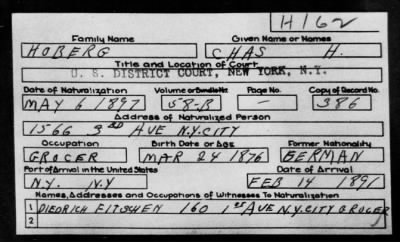 H162
Family Name Given Name or Names
HOBERG CHAS H.
Title and Location of Court
U. S. DISTRICT COURT, NEW YORK, N.Y.
Date of Naturalization Volume or Bundle No. Page No. Copy of Record No.
MAY 6 1897 58-B - 386
Address of Naturalized Person
1566 3RD AVE N.Y.CITY
Occupation Birth Date or Age Former Nationality
GROCER MAR 24 1876 GERMAN
Port of Arrival in the United States Date of Arrival
N.Y. N.Y FEB 14 1891
Names, Addresses and Occupations of Witnesses To Naturalization
1 DIEDRICH EITSCHEN 160 1ST AVE N.Y.CITY GROCER
2